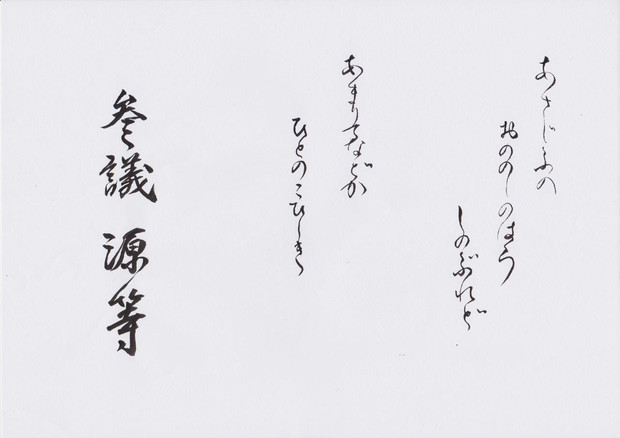 あさじふの
おののしのはら
しのぶれど
あまりてなどか
ひとのこひしき
参議 源等